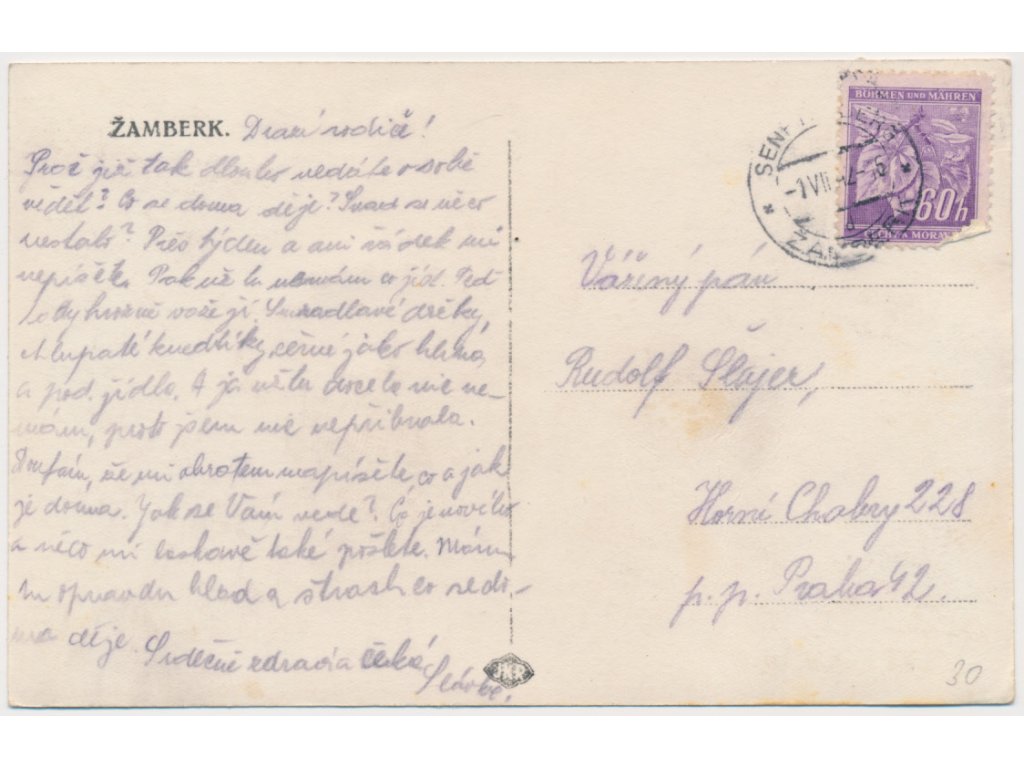 ŽAMBERK. Drazí rodiče!
Proč již tak dlouho nedáte o sobě
vědět? Co se doma děje? Snad se něco
nestalo? Přes týden a ani řádek mi
nepíšete. Pak už tu nemám co jíst. Teď
hrozně vaří. Smradlavé dršťky,
chlupaté knedlíky, černé jako hlína,
a pod. jídla. A já něho docela nic ne-
mám, proto jsem nic nepřibrala.
Doufám, že mi obratem napíšete co a jak
je doma. Jak se Vám vede? Co je nového
a něco mi laskavě také pošlete. Mám
tu opravdu hlad a strach co se do-
ma děje. Srdečně zdraví a čeká
Slávka.
BÖHMEN UND MÄHREN
60 h
SENFTENBERG
-1 VII 42-16
Vážený pán
Rudolf Šlajer,
Horní Chabry 228
p. p. Praha 42.
30